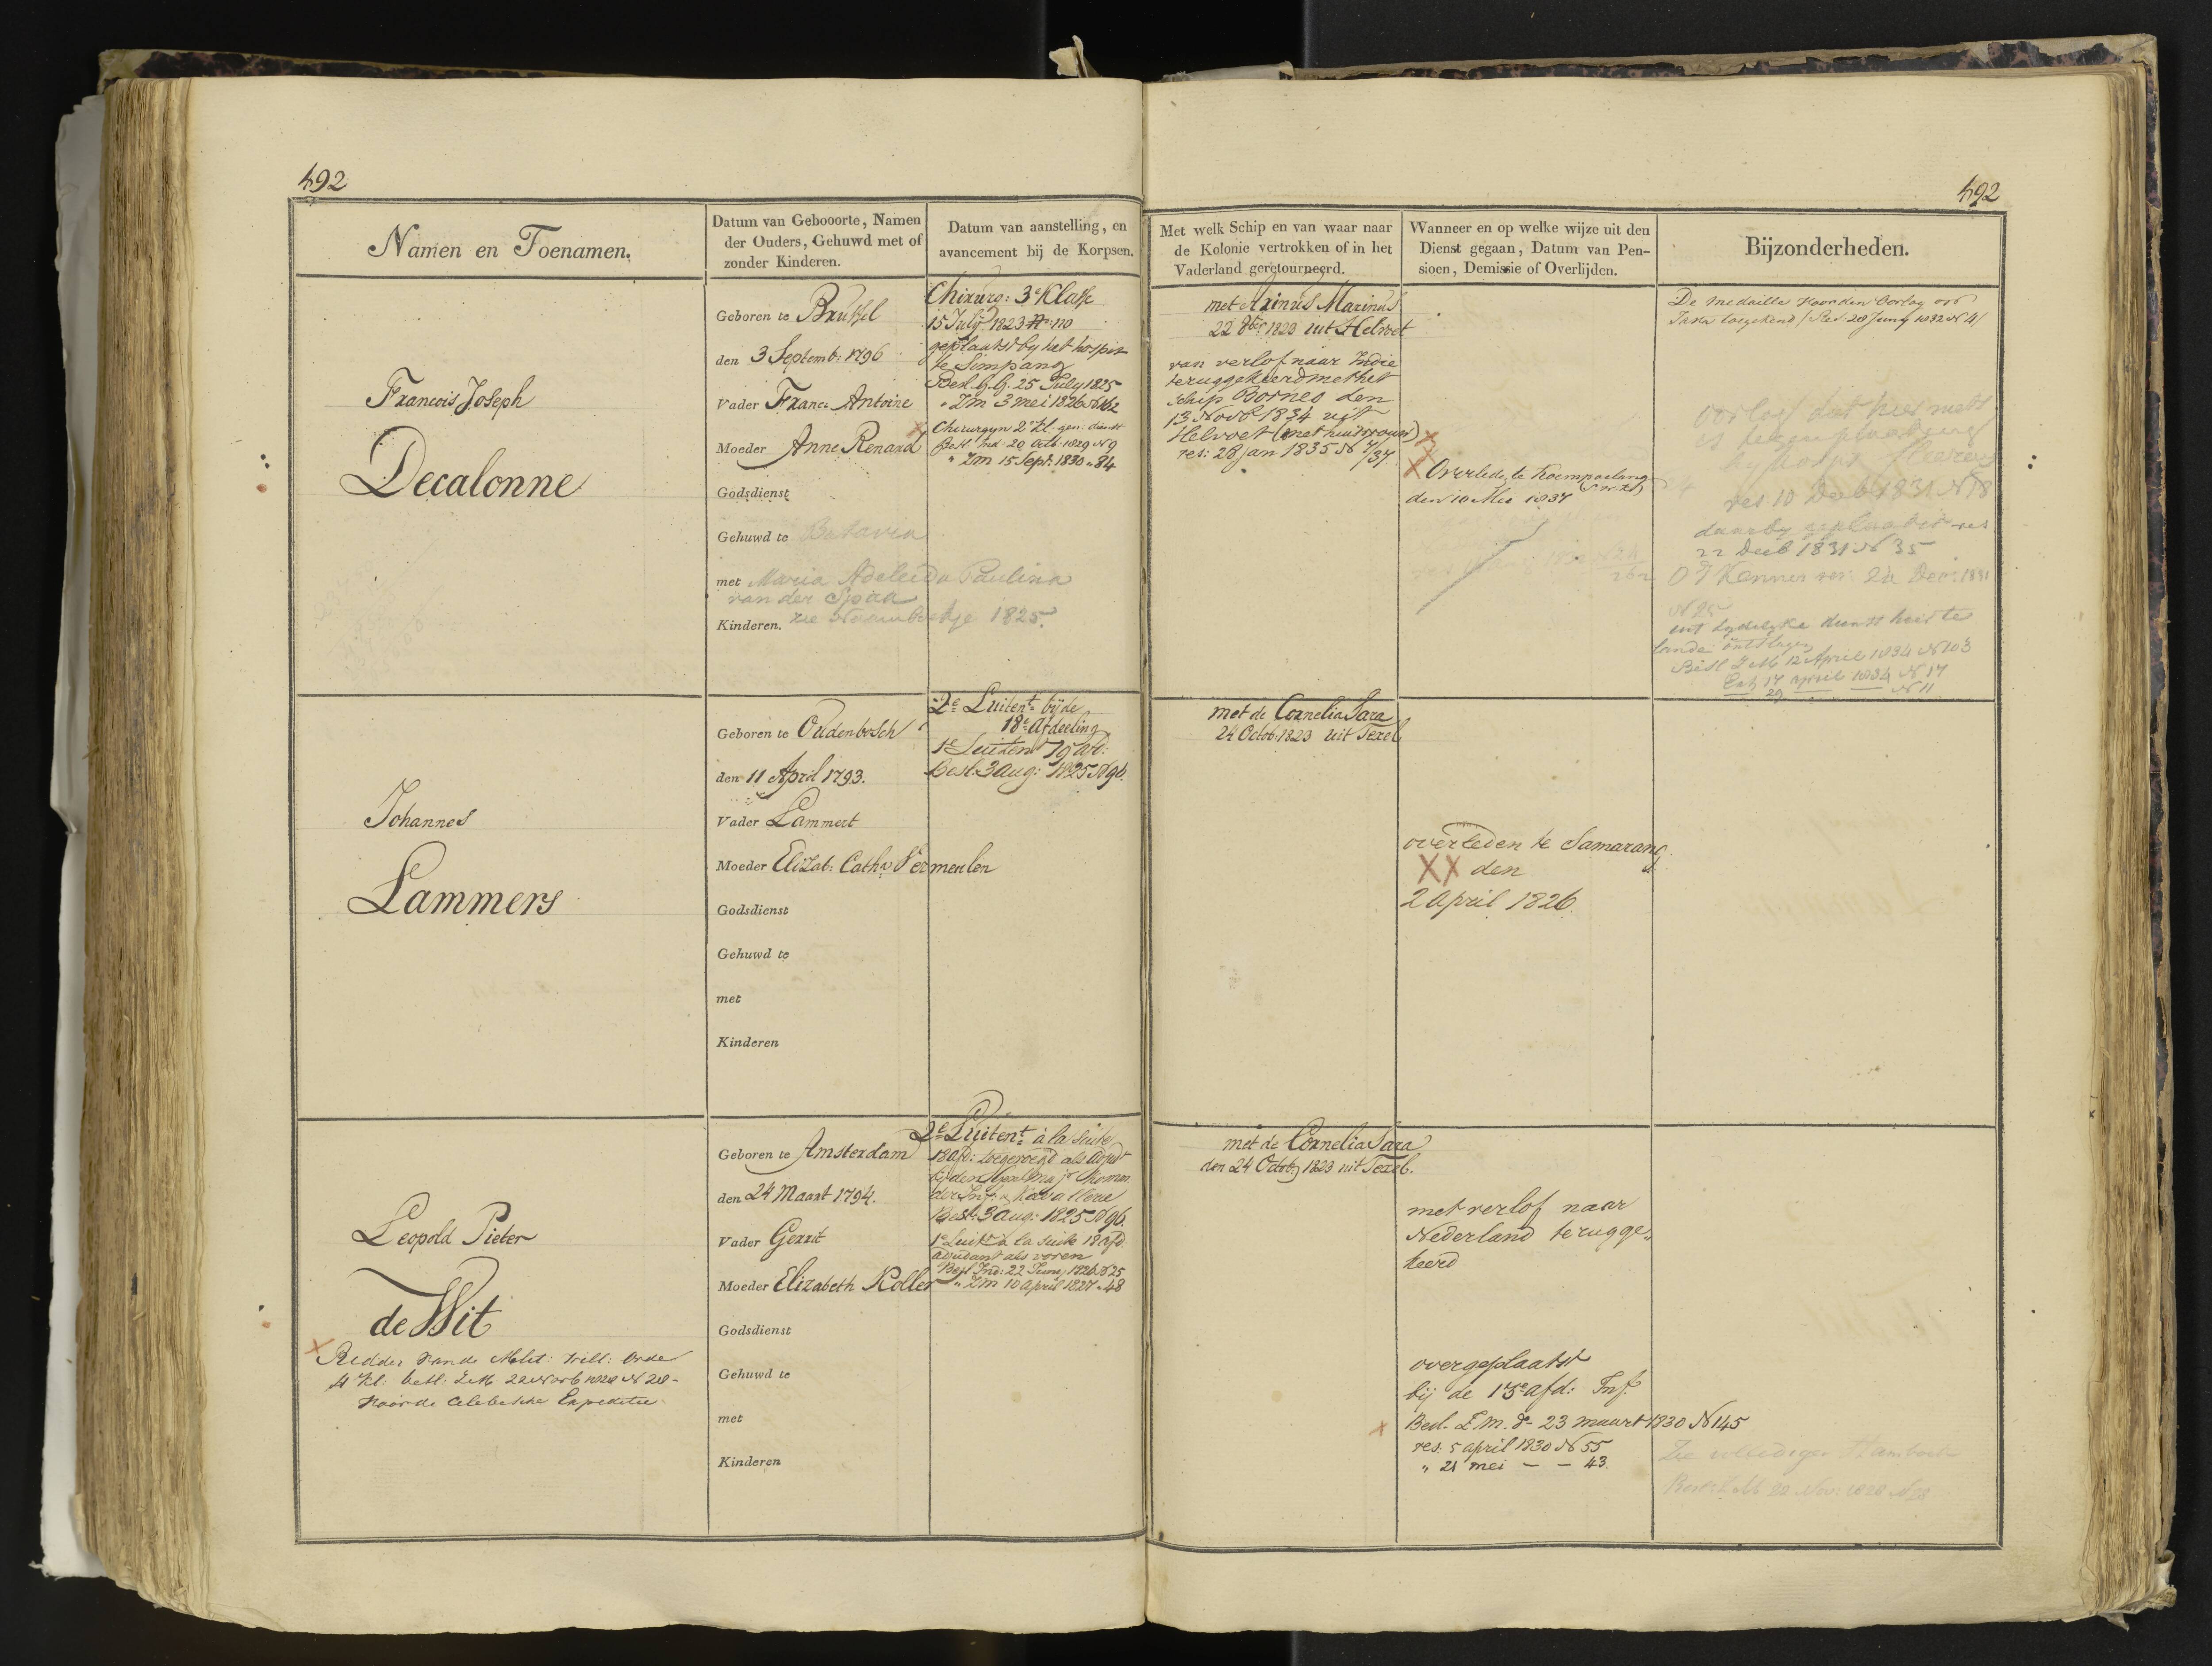 492
492
Namen en Toenamen.
Datum van Gebooorte, Namen
der Ouders, Gehuwd met of
zonder Kinderen.
Datum van aanstelling, en
avancement bij de Korpsen.
Met welk Schip en van waar naar
de Kolonie vertrokken of in het
Vaderland geretourneerd.
Wanneer en op welke wijze uit den
Dienst gegaan, Datum van Pen-
sioen, Demissie of Overlijden.
Bijzonderheden.
Francois Joseph
Decalonne
Geboren te Brussel
den 3 Septemb: 1796
Vader Franc: Antoine
Moeder Anne Renard
Godsdienst
Gehuwd te Batavia
met Maria Adeleida Paulina
van der Spaa
Kinderen. zie Naamboekje 1825.
Chirurg: 3e Klasse
15 July 1823 No: 110
geplaatst by het hospit
te Simpang
Besl. G.G. 25 July 1825
" Zm 3 mei 1826 N 162
Chirurgyn 2e kl. gen. dienst
Besl. Ind. 20 Octb. 1829 N 9
" Zm 15 Sept: 1830 " 84
met Arinus Marinus
22 8ber 1823 uit Helvoet
van verlof naar Indie
teruggekeerd met het
schip Borneo den
13 Novb 1834 uit
Helvoet (met huisvrouw)
res: 28 jan 1835 N 7/37
Overleden te
den 10 Mei 1837
De medaille voor den Oorlog op
Java toegekend / Res. 28 Juny 1832 N 4/
res 10 Decb 1831 N 18
daarby geplaatst res
22 Decb 1831 N 35
uit tydelyke dienst hier te
lande ontslagen
Besl Zm 12 April 1834 N 103
17 april 1834 N 17
29 — — N 11
Johannes
Lammers
Geboren te Oudenbosch
den 11 April 1793.
Vader Lammert
Moeder Elizab: Catha Vermeulen
Godsdienst
Gehuwd te
met
Kinderen
2e Luitent bij de
18e Afdeeling
1e Luitent 19 afd:
Besl. 3 Aug: 1825 N 96.
met de Cornelia Sara
24 Octob. 1823 uit Texel
overleden te Samarang
XX den
2 April 1826.
Leopold Pieter
de Wit
Ridder van de Milit: Will: Orde
4 kl. besl: Zm 22 Novb 1828 N 28 -
voor de Celebesche Expeditie
Geboren te Amsterdam
den 24 Maart 1794.
Vader Gerrit
Moeder Elizabeth Koller
Godsdienst
Gehuwd te
met
Kinderen
2e Luitent à la Suite
18 afd: toegevoegd als Adjudt
by den Genl Maj
der Inf: & Kavallerie
Besl: 3 Aug: 1825 N 96.
1e Luitt à la suite 18 afd.
adjudant als voren
Besl Ind: 22 Juny 1826 N 25
" Zm 10 April 1827 " 48
met de Cornelia Sara
den 24 Octob 1823 uit Texel.
met verlof naar
Nederland terugge,
keerd
overgeplaatst
bij de 13e afd: Inf.
Besl. Z.m. dd 23 maart 1830 N 145
res. 5 april 1830 N 55
" 21 mei — — 43.
22 Nov: 1828 N 28